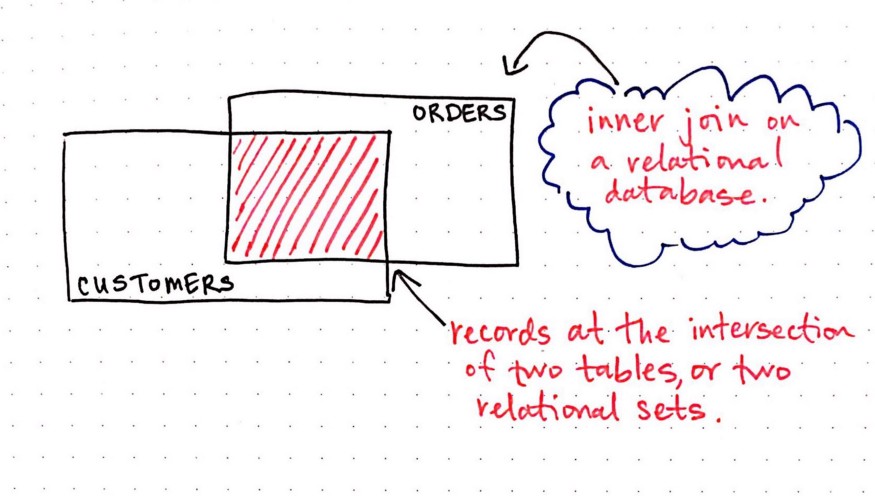 ORDERS
inner join on
a relational
database.
CUSTOMERS
records at the intersection
of two tables, or two
relational sets.